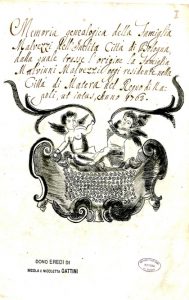 I
Memoria genealogica della Famiglia
Malvezzi dell'Inclita Città di Bologna,
dalla quale trasse l'origine la Famiglia
Malvinni Malvezzi d'oggi residente nella
Città di Matera del Regno di Na-
poli, ut intus, Anno 1763.
DONO EREDI DI
NICOLA E NICOLETTA GATTINI